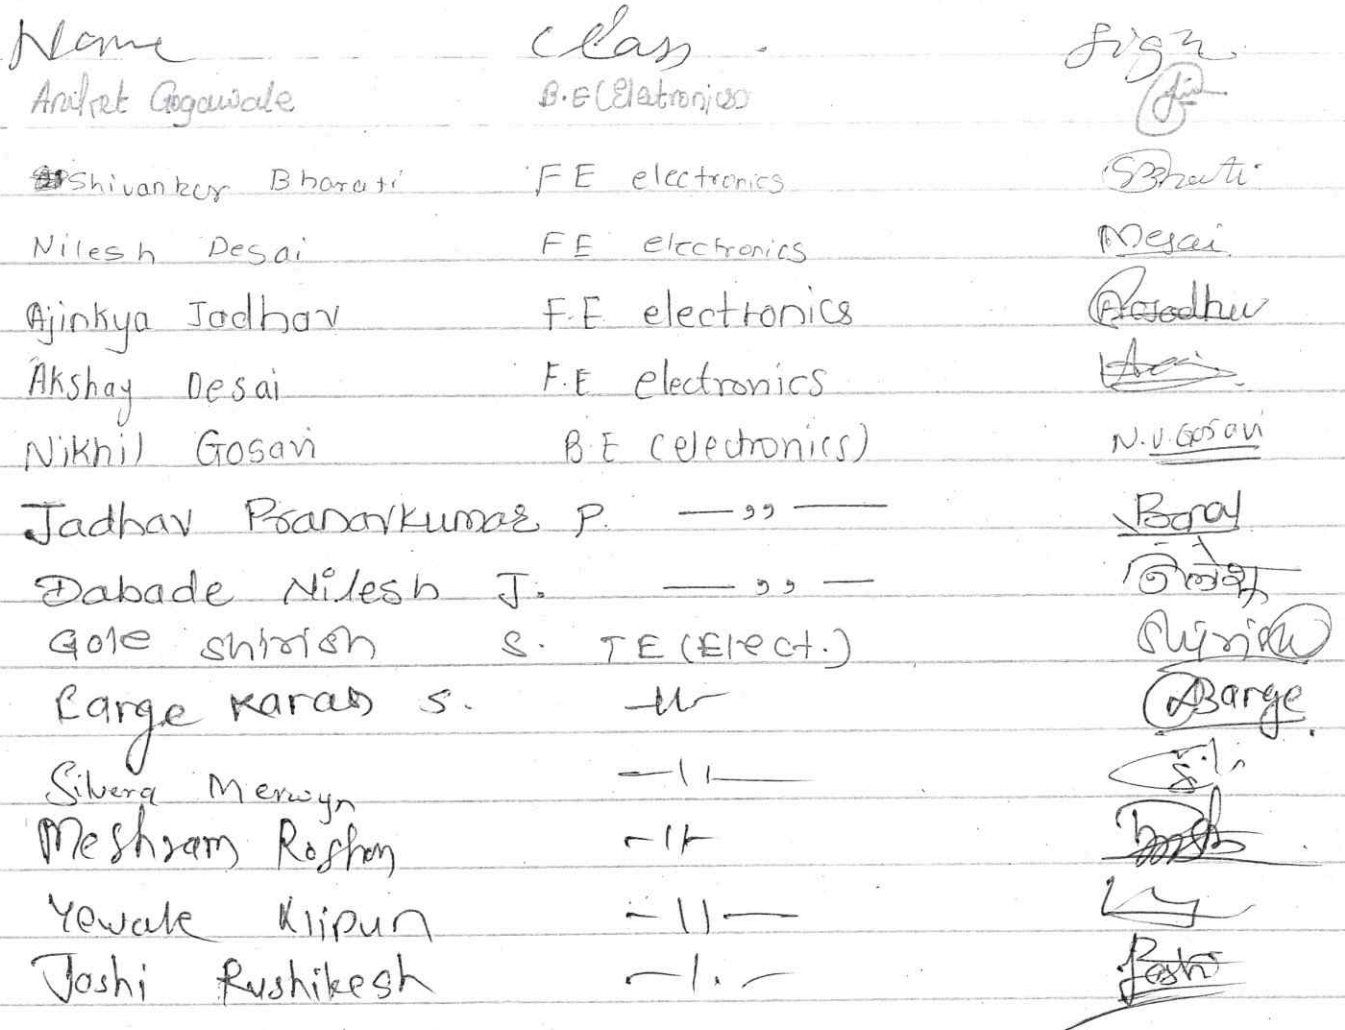 Name Class Sign
Aniket Gogawale B.E (Eletronics)
Shivanker Bharati FE electronics SBharti
Nilesh Desai FE electronics NDesai
Ajinkya Jadhav F.E electronics AJadhav
Akshay Desai F.E electronics
Nikhil Gosavi B.E (electronics) N.V.Gosavi
Jadhav Pranavkumar P. —,,—
Dabade Nilesh J. —,,— निलेश
Gole Shirish S. TE (Elect.) Shirish
Barge Karan S. —11— Barge
Silvera Merwyn —11—
Meshram Roshan —11—
Yewale —11—
Joshi Rushikesh —11— Joshi